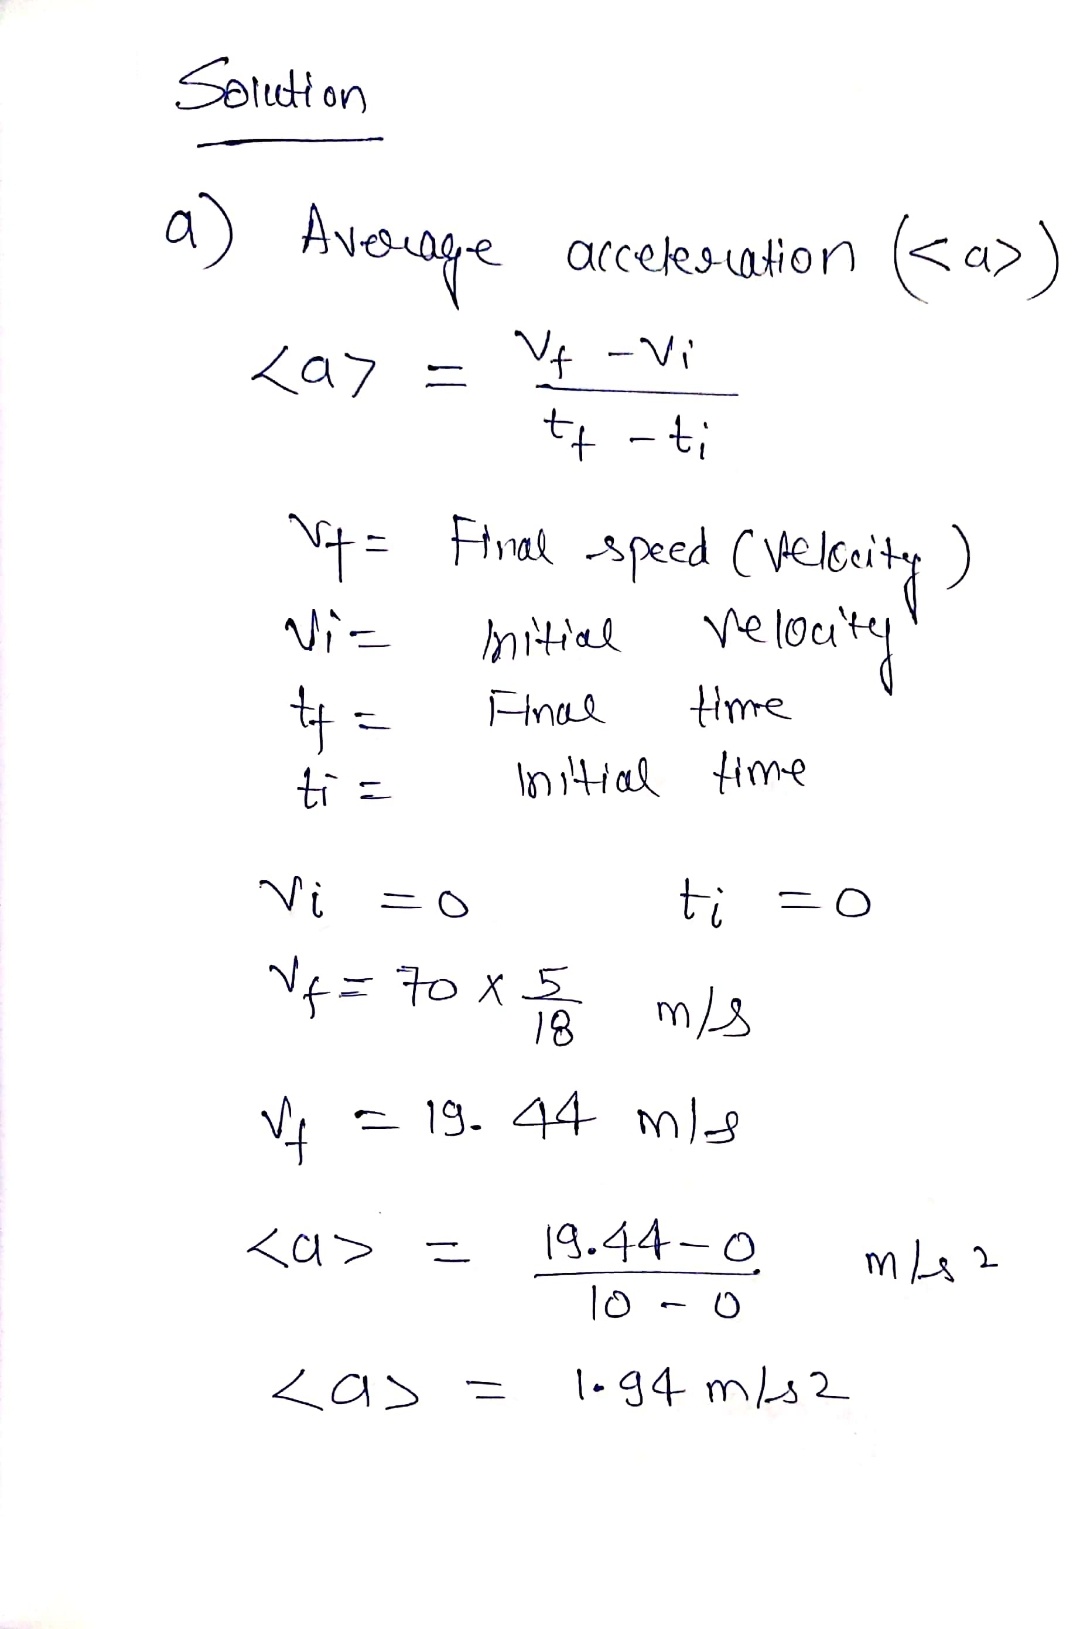 Solution
a) Average acceleration (<a>)
<a> = Vf - Vi
tf - ti
Vf = Final speed (velocity)
Vi = Initial velocity
tf = Final time
ti = Initial time
Vi = 0 ti = 0
Vf = 70 x 5/18 m/s
Vf = 19.44 m/s
<a> = 19.44 - 0 m/s2
10 - 0
<a> = 1.94 m/s2